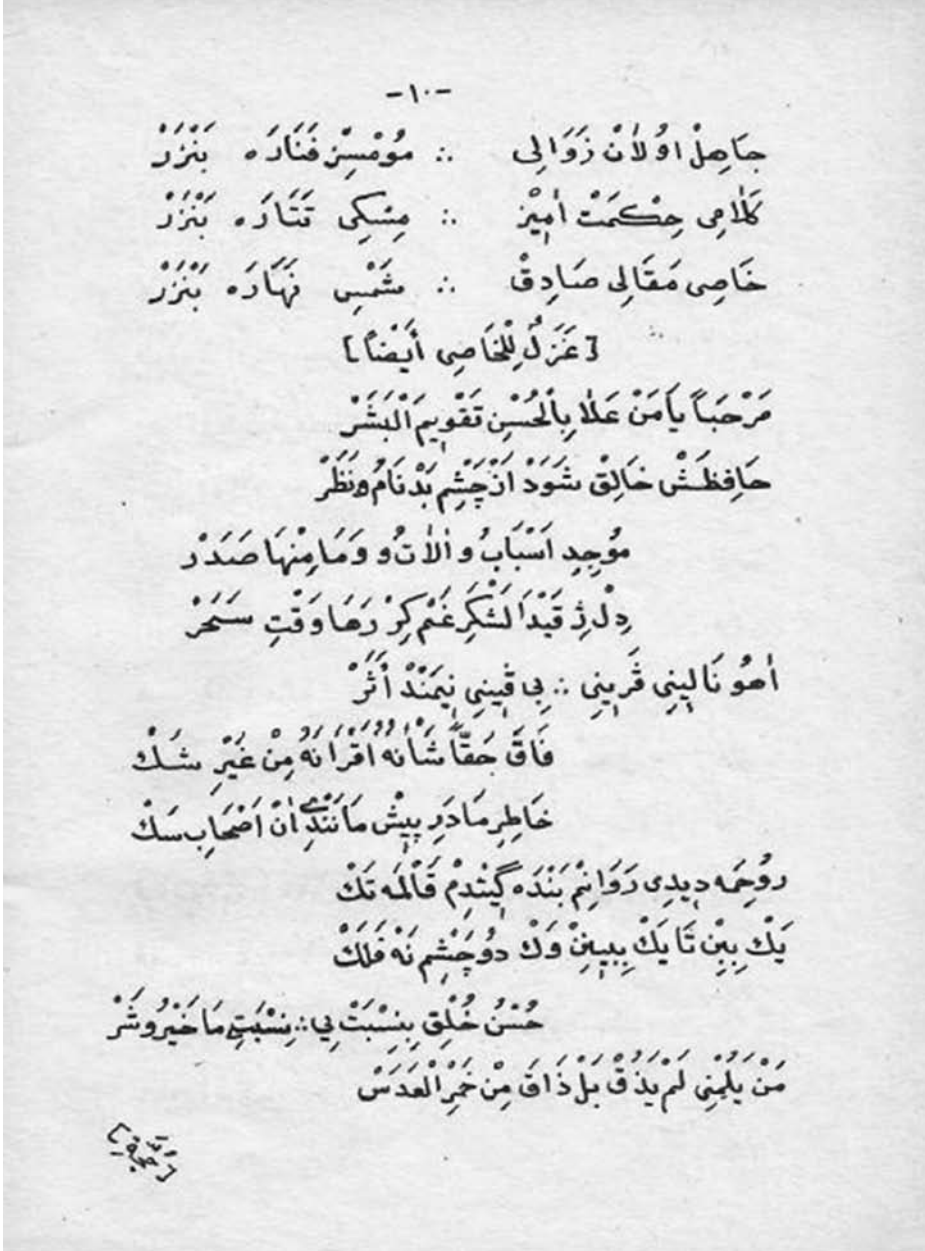 -١٠-
حَاصِلْ اوُلَانْ زَوَالِى ∴ مُومْسِزْ فَنَارَه بَنْزَرْ
كَلَامِى حِكْمَتْ اٰمِيْز ∴ مِسْكِى تَتَارَه بَنْزَرْ
خَاصِى مَقَالِى صَادِقْ ∴ شَمْسِ نَهَارَه بَنْزَرْ
[غَزَلُ لِلْخَاصِى أَيْضاً]
مَرْحَبَاً يَا مَنْ عَلَا بِالْحُسْنِ تَقْوِيمَ الْبَشَرْ
حَافِظَشْ خَالِقْ شَوَدْ اَزْ چَشْمِ بَدْنَامُ و نَظَرْ
مُوجِدِ اَسْبَابُ و اٰلَاتُ و وَمَا مِنْهَا صَدَرْ
دِلْ ژِ قَيْدَا لَشْكَرِ غَمْ كِرْ رَهَا وَقْتِ سَحَرْ
اٰهُو نَالِينِى ڤَرِينِى ∴ بِى ڤِينِى نِيمَنْدْ أَثَرْ
فَاقَ حَقّاً شَأْنُهُ اَقْرَانَهُ مِنْ غَيْرِ شَكْ
خَاطِرِ مَا دَرِ پِيْش مَانَنْدِ اٰنْ اَصْحَابِ سَكْ
رُوحِمَه دِيدِى رَوَانِمْ بَنْدَه گِيتْدِمْ قَالْمَه تَكْ
يَكْ بِبِيْن تَا يَكْ بِبِينِنْ وَكْ دُو چَشْمِ نَهْ فَلَكْ
حُسْنُ خُلْقِ بِنِسْبَتْ بِي ∴ نِسْبَتِ مَا خَيْرُ و شَرْ
مَنْ يَلُمْنِى لَمْ يَذُقْ بَلْ ذَاقَ مِنْ خَمْرِ الْعَدَسْ